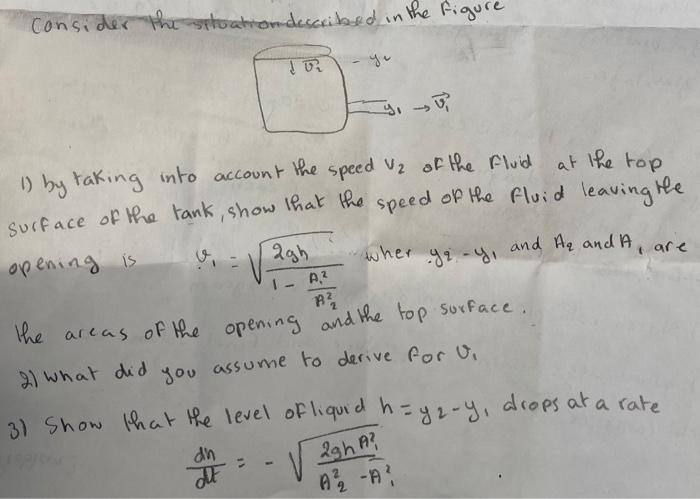 Consider the situation described in the Figure
↓ v⃗₂ - y₂
y₁ → v⃗₁
1) by taking into account the speed v₂ of the Fluid at the top
surface of the tank, show that the speed of the fluid leaving the
opening is v₁ = √(2gh / (1 - A₁²/A₂²)) wher y₂ - y₁ and A₂ and A₁ are
the areas of the opening and the top surface.
2) what did you assume to derive for v₁
3) Show that the level of liquid h = y₂ - y₁ drops at a rate
dh/dt = - √(2gh A₁² / (A₂² - A₁²))